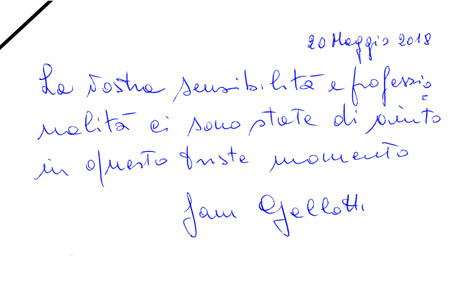 20 Maggio 2018
La vostra sensibilità e professio
nalità ci sono state di aiuto
in questo triste momento
Fam Gellotti